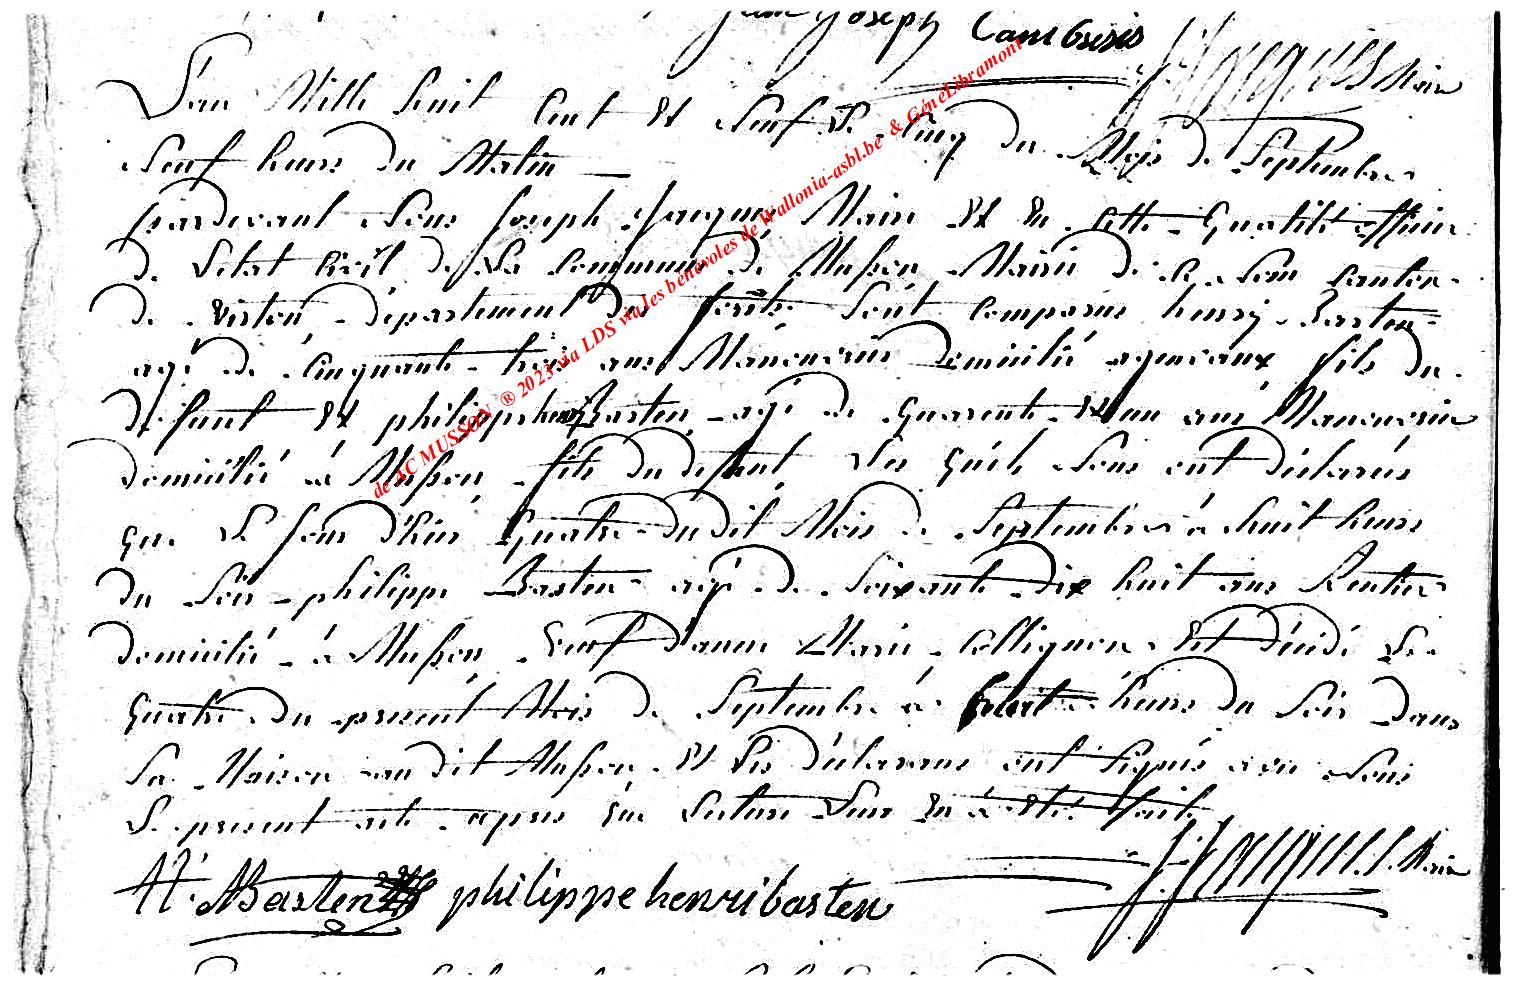 jean joseph Cambresis
J. Jacques Maire
L'an Mille huit Cent Et Neuf Le Cinq du Mois de Septembre
Neuf heures du Matin
pardevant Nous Joseph Jacques Maire Et En Cette Qualité officier
de L'etat Civil de La Commune de Musson Mairie de Ce Nom Canton
de Virton département des forêts Sont Comparus henry Basten
agé de Cinquante trois ans Manoeuvre domicilié agomeaux fils du
defunt Et philippe henri Basten agé de Quarente Et un ans Manoeuvre
domicilié à Musson fils du defunt Les quels Nous ont déclarés
que Le Jour d'hier Quatre du dit Mois de Septembre à huit heures
du Soir philippe Basten agé de Soixante dix huit ans Rentier
domicilié à Musson veuf d'anne Marie Collignon Est décédé Le
Quatre du present Mois de Septembre à huit heures du Soir dans
Sa Maison au dit Musson Et Les déclarans ont Signés avec Nous
Le present acte apres que Lecture Leur En à Eté faite
H. Basten philippe henri basten J. Jacques Maire
de AC MUSSON ® 2023 via LDS via les bénévoles de Wallonia-asbl.be & GéneLibramont